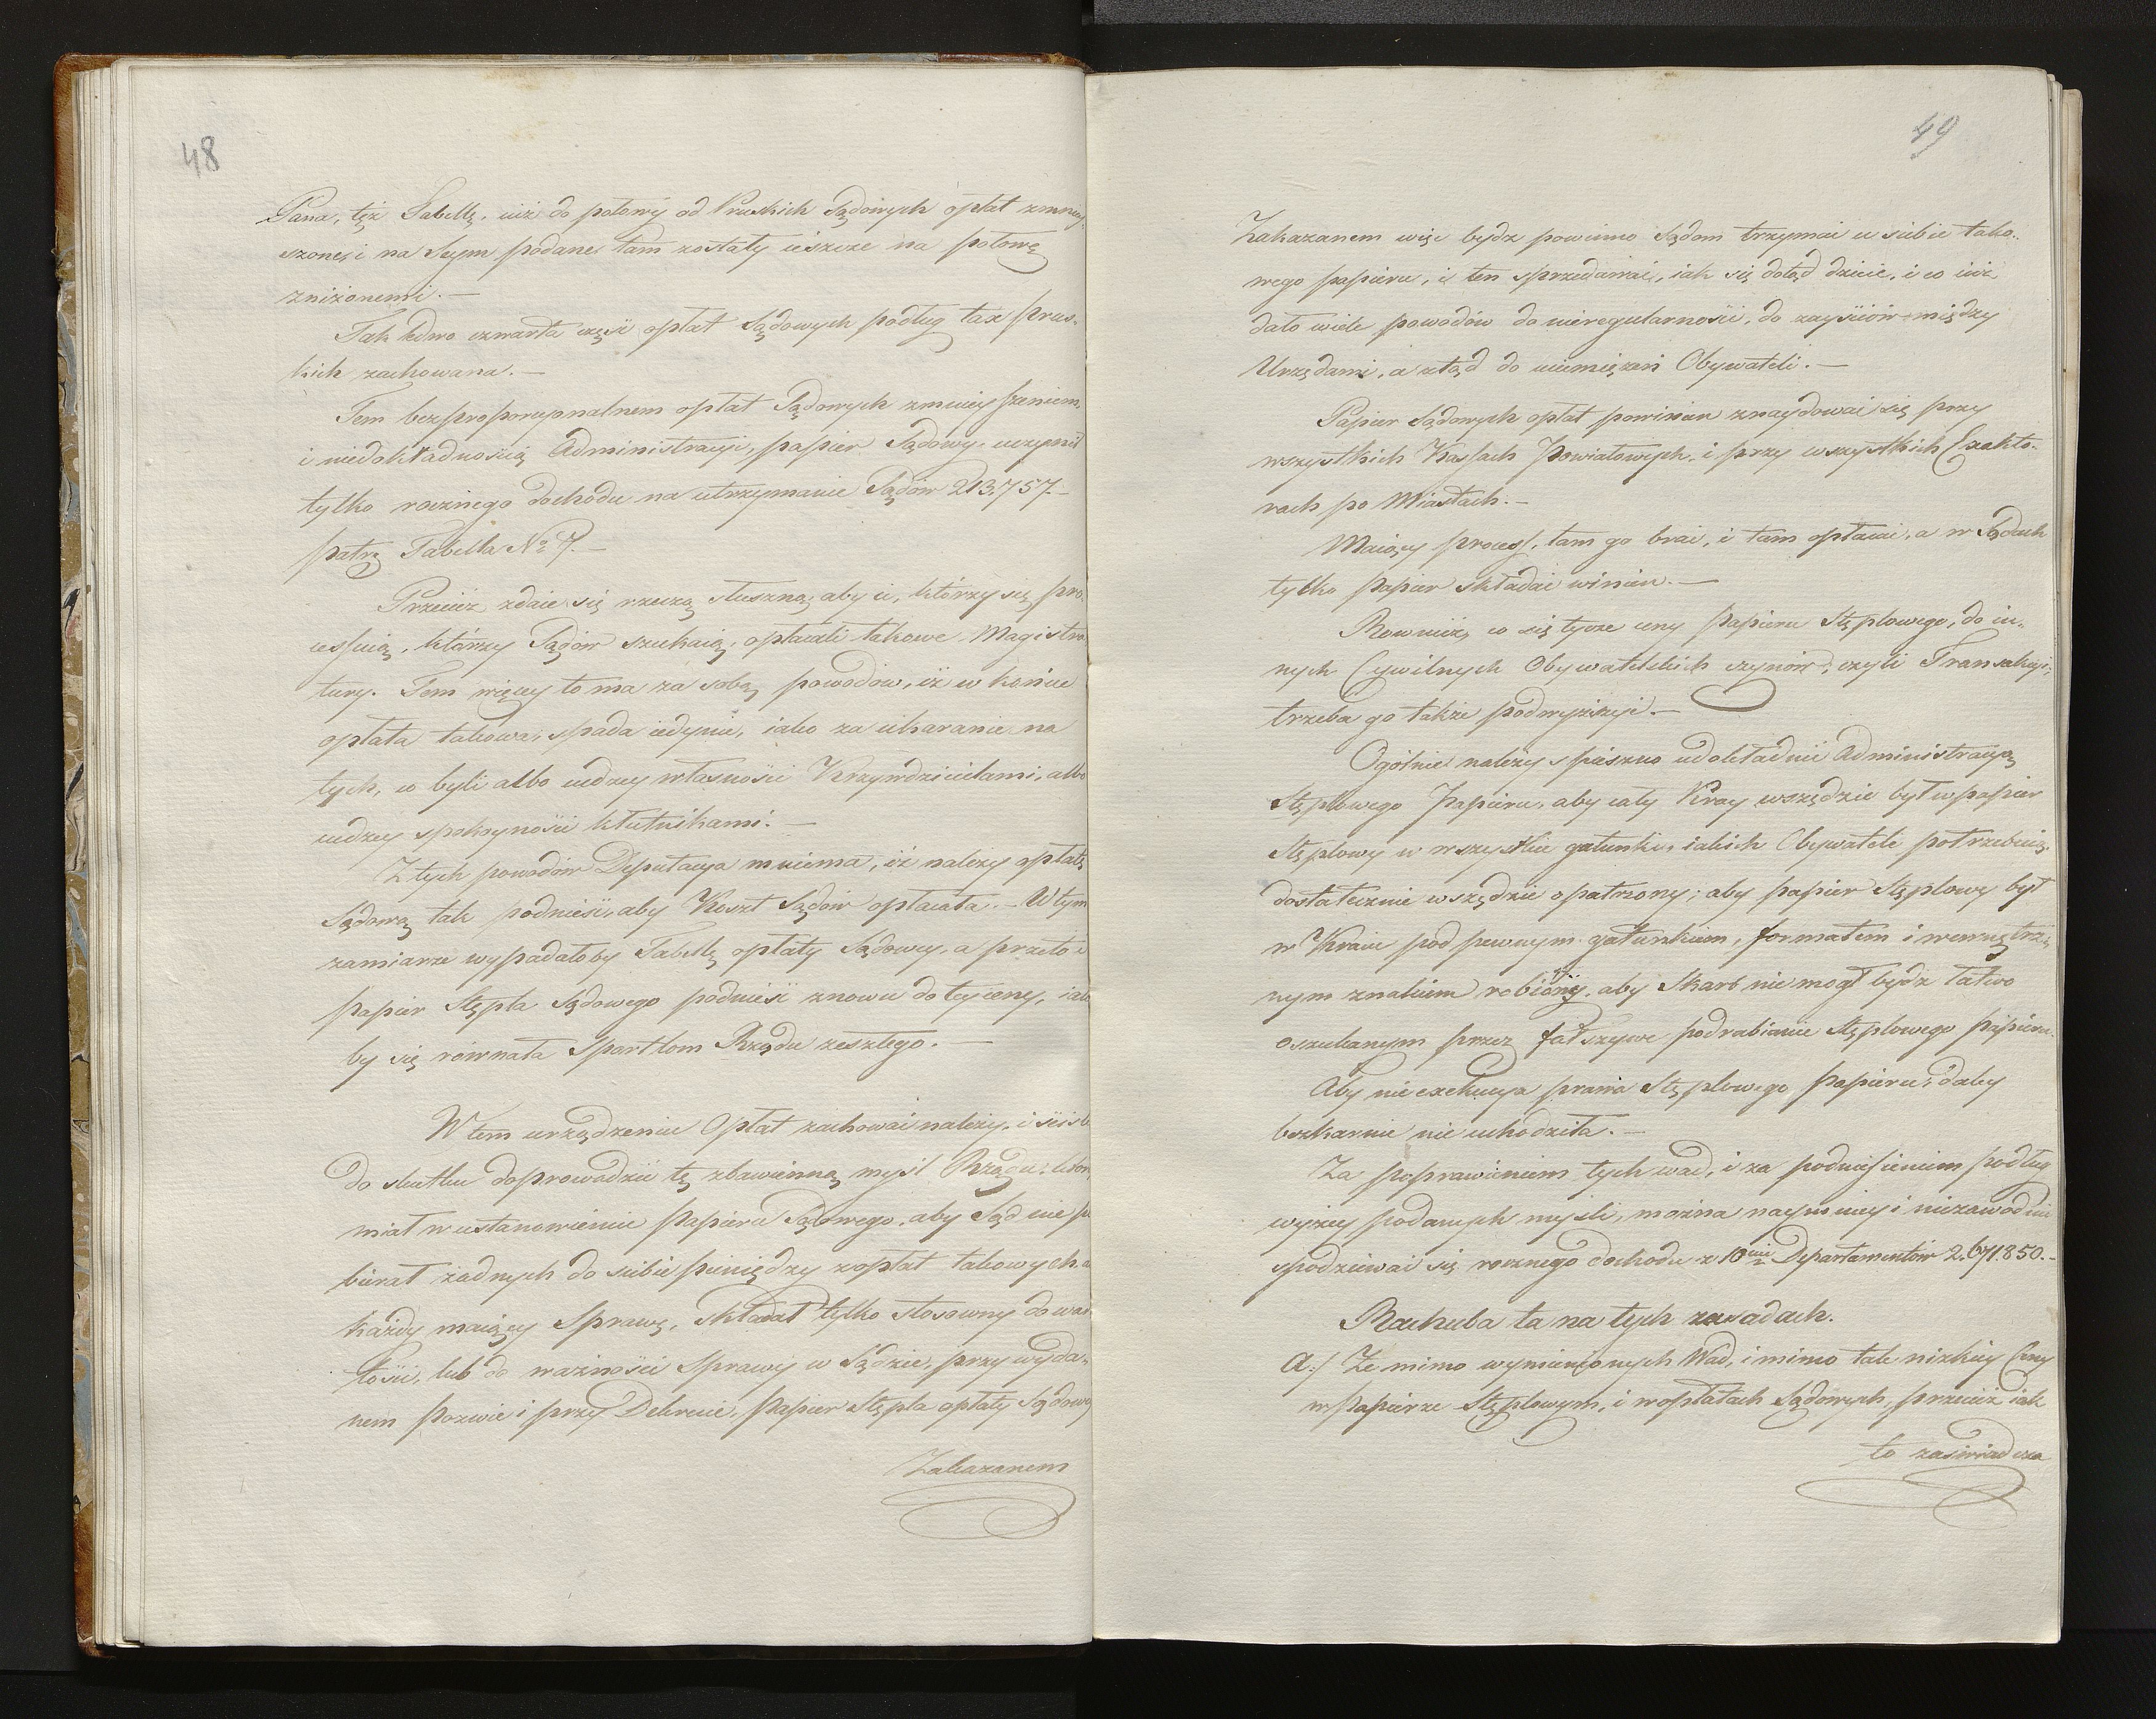 48
Pana, tęż Tabellę, iuż do połowy od Pruskich Sądowych opłat zmniey-
szone, i na Seym podane, tam zostały ieszcze na połowę
zniżonemi. —
Tak ledwo czwarta część opłat Sądowych podług tax prus-
kich zachowana. —
Tem bezproporcyonalnem opłat Sądowych zmnieyszeniem,
i niedokładnością Administracyi, papier Sądowy uczynił
tylko rocznego dochodu na utrzymanie Sądów 213,757. —
patrz Tabella No 7. —
Przecież zdaie się rzeczą słuszną, aby ci, którzy się pro-
cessuią, którzy Sądów szukaią, opłacali takowe Magistra-
tury. Tem więcey to ma za sobą powodów, iż w końcu
opłata takowa, spada iedynie, iako za ukaranie na
tych, co byli albo cudzey własności Krzywdzicielami, albo
cudzey spokoyności kłutnikami. —
Z tych powodów Deputacya mniema, iż należy opłatę
Sądową tak podnieść, aby Koszt Sądów opłacała. — W tym
zamiarze wypadałoby Tabellę opłaty Sądowey, a przeto i
papier Stępla Sądowego podnieść znowu do tey ceny, iak
by się równała Sportlom Rządu zeszłego. —
W tem urządzeniu Opłat zachować należy, i ściśle
do skutku doprowadzić tę zbawienną myśl Rządu, któr
miał w ustanowieniu papieru Sądowego, aby Sąd nie po
bierał żadnych do siebie pieniędzy z opłat takowych a
każdy maiący Sprawę, składał tylko stosowny do war
tości, lub do ważności Sprawy w Sądzie, przy wyda-
nem pozwie i przy Dekrecie, papier Stępla opłaty Sądowey
Zakazanem
49
Zakazanem więc bydz powinno Sądom trzymać u siebie tako-
wego papieru, i ten sprzedawać, iak się dotąd dzieie, i co iuż
dało wiele powodów do nieregularności, do zayściów między
Urzędami, a ztąd do uciemiężeń Obywateli. —
Papier Sądowych opłat powinien znaydować się przy
wszystkich Kassach Powiatowych, i przy wszystkich Exakto-
rach po Miastach. —
Maiący process, tam go brać, i tam opłacać, a w Sądach
tylko papier składać winien. —
Rownież, co się tycze ceny papieru Stęplowego, do in-
nych Cywilnych Obywatelskich czynów, czyli Transakcyi,
trzeba go także podwyższyć. —
Ogólnie należy spieszno udokładnić Administracyą
Stęplowego Papieru, aby cały Kray wszędzie był w papier
Stęplowy w wszystkie gatunki, iakich Obywatele potrzebuią,
dostatecznie wszędzie opatrzony; aby papier Stęplowy był
w Kraiu pod pewnym gatunkiem, formatem i wewnętrz-
nym znakiem robiony, aby Skarb nie mogł bydz łatwo
oszukanym przez fałszywe podrabianie Stęplowego papieru.
Aby nieexekucya prawa Stęplowego papieru, daley
bezkarnie nie uchodziła. —
Za poprawieniem tych wad, i za podniesieniem podług
wyżey podanych myśli, można naymniey i niezawodnie
spodziewać się rocznego dochodu z 10ciu Departamentów 2,671.850. —
Rachuba ta na tych zasadach.
a./ Ze mimo wymienionych Wad, i mimo tak nizkiey Ceny
w papierze Stęplowym, i w opłatach Sądowych, przecież iak
to zaświadcza